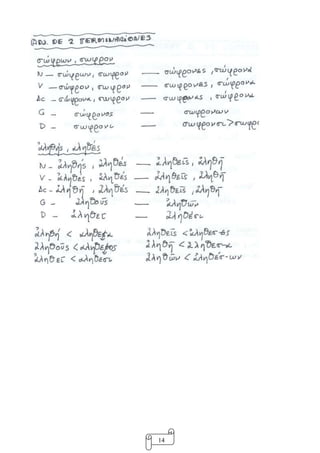 ADJ. DE 2 TERMINACIONES
σώφρων, σωφρον
N — σώφρων, σωφρον — σώφρονες, σώφρονα
V — σώφρον, σωφρον — σωφρονες, σώφρονα
Ac — σώφρονα, σωφρον — σώφρονας, σώφρονα
G — σώφρονος — σωφρονων
D — σωφρονι — σωφρονσι > σωφροσι
ἀληθής, ἀληθές
N — ἀληθής, ἀληθές — ἀληθεῖς, ἀληθῆ
V — ἀληθές, ἀληθές — ἀληθεῖς, ἀληθῆ
Ac — ἀληθῆ, ἀληθές — ἀληθεῖς, ἀληθῆ
G — ἀληθοῦς — ἀληθῶν
D — ἀληθεῖ — ἀληθέσι
ἀληθῆ < ἀληθεσα ἀληθεῖς < ἀληθεσ-ες
ἀληθοῦς < ἀληθεσος ἀληθῆ < ἀληθεσ-α
ἀληθεῖ < ἀληθεσι ἀληθῶν < ἀληθέσ-ων
14